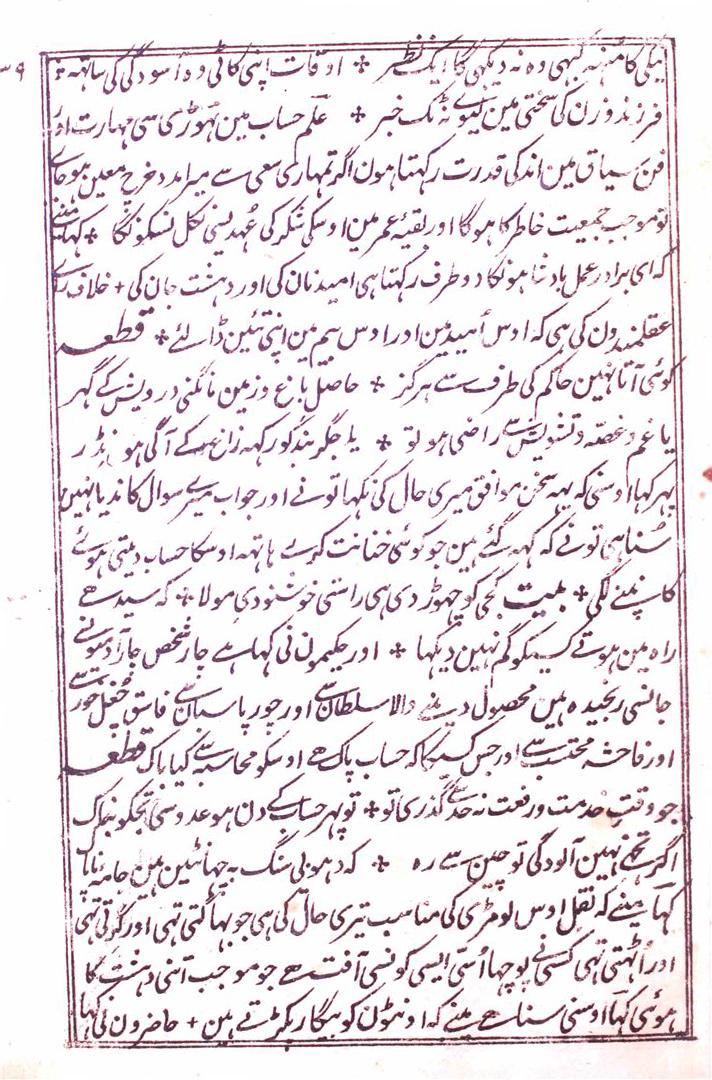 نیکی کا منہہ کبہی وہ نہ دیکہی گا ایک نظر + اوقات اپنی کاٹی وہ آسودگی کی ساتہہ +
۳۹
فرزند و زن کی سختی مین لیوے نہ ٹک خبر + علم حساب مین تہوڑی سی مہارت اور
فن سیاق مین اندکی قدرت رکہتا ہون اگر تمہاری سعی سے میرا مدد خرچ معین ہو جاے
تو موجب جمعیت خاطر کا ہوگا اور بقیۂ عمر مین اوسکی شکر کی عُہدیسی نکل نسکونگا + کہا مینے
کہ ای برادر عمل بادشاہونکا دو طرف رکہتا ہی امید نان کی اور دہشت جان کی + خلاف راے
عقلمندون کی ہی کہ اوس اُمید مین اور اوس بیم مین اپنی تئین ڈالئے + قطعہ
کوئی آتا نہین حاکم کی طرف سے ہرگز + حاصل باغ و زمین مانگنی درویش کے گہر
یا غم و غصّہ و تشویش سے راضی ہو تو + یا جگر بند کو رکہہ زاغ کے آگی ہو نڈر
پہر کہا اوسنی کہ یہہ سخن موافق میری حال کی نکہا تونے اور جواب میرے سوال کا ندیا نہین
سُنا ہی تونے کہ کہہ گئے ہین جو کوئی خیانت کرے ہاتہہ اوسکا حساب دیتی ہوئے
کانپنے لگی + بیت کجی کو چہوڑ دی ہی راستی خوشنودی مولا + کہ سیدھے
راہ مین ہوتے کسیکو گم نہین دیکہا + اور حکیمون نی کہا ہے چار شخص چار آدمیونسے
جانسی رنجیدہ ہین محصول دینے والا سلطان سے اور چور پاسبان سے فاسق چغلخور سے
اور فاحشہ محتسب سے اور جس کسیکا کہ حساب پاک ہے اوسکو محاسبہ سے کیا باک قطعہ
جو وقتِ خدمت و رفعت نہ حد سے گذری تو + تو پہر حساب کے دن ہو عدو سی تجکو نباک
اگر تجہے نہین آلودگی تو چین سے رہ + کہ دہوبی سنگ پہ چہانٹین ہین جامۂ ناپاک
کہا مینے کہ نقل اوس لومڑی کی مناسب تیری حال کی ہی جو بہاگتی تہی اور گرتی تہی
اور اُٹہتی تہی کسی نے پوچہا اُسّی ایسی کونسی آفت ہے جو موجب اتنی دہشت کا
ہوئی کہا اوسنی سنا ہے مینے کہ اونٹون کو بیگار پکڑتے ہین + حاضرون نی کہا